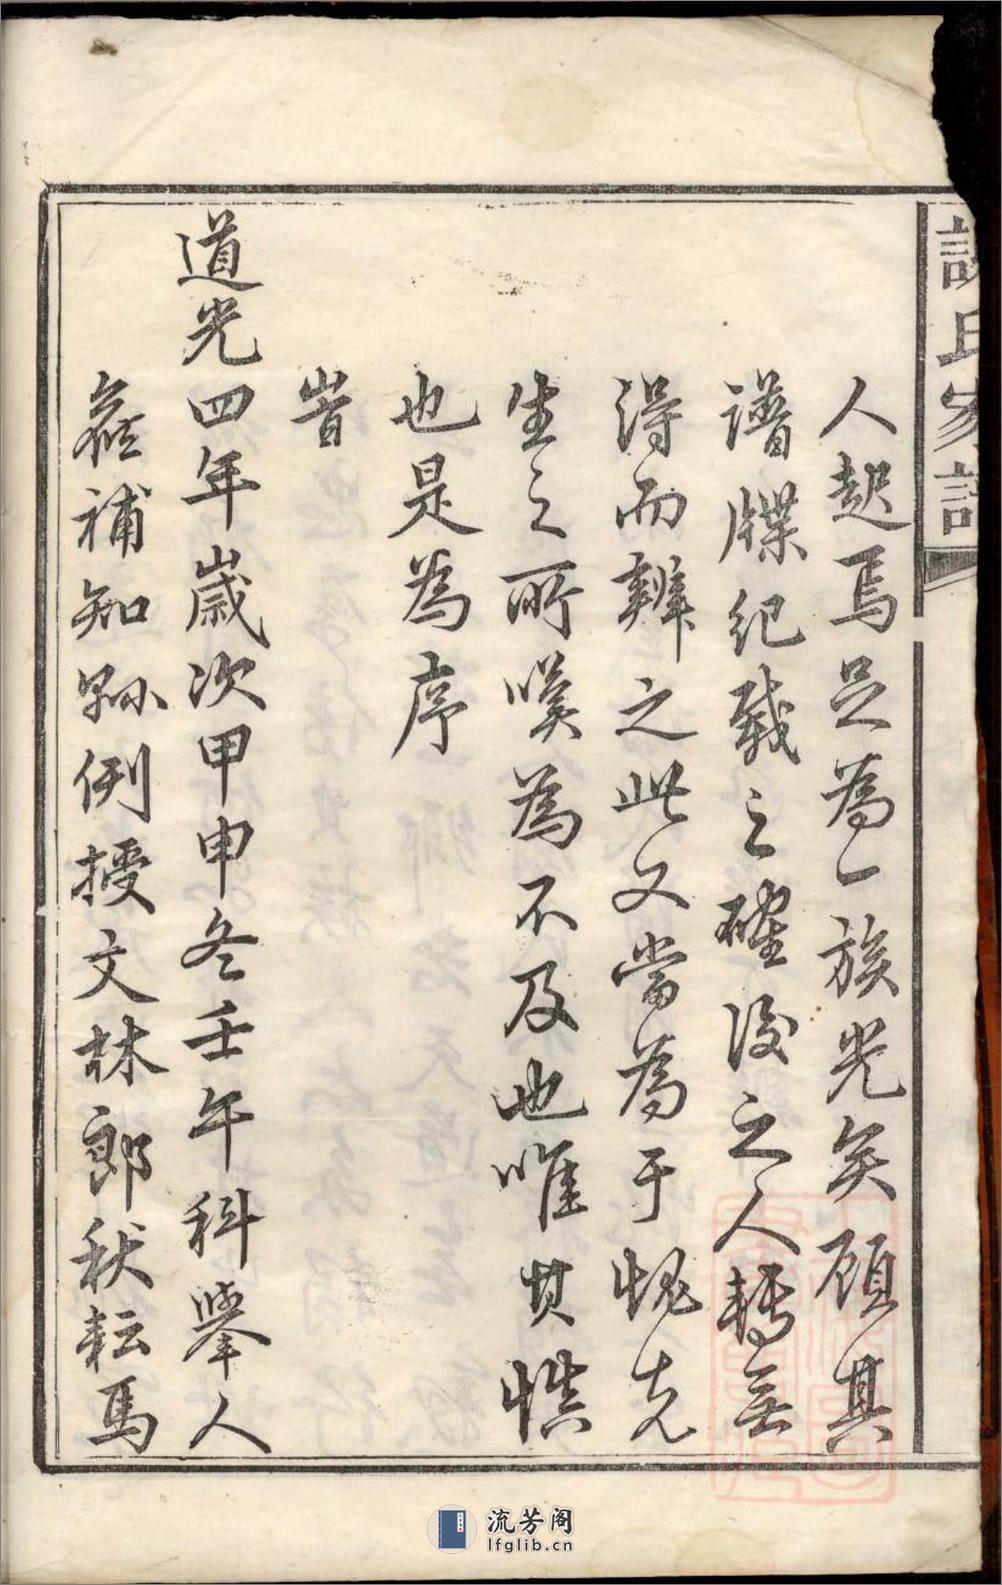 氏家譜
人起焉足為一族光矣顧其
譜牒紀載之確後之人轉無
得而辨之此又當為于愧先
生之所嘆為不及也唯其慎
也是為序
旹
道光四年歲次甲申冬壬午科舉人
僉補知縣例授文林郎秋耘馬
流芳阁
lfglib.cn